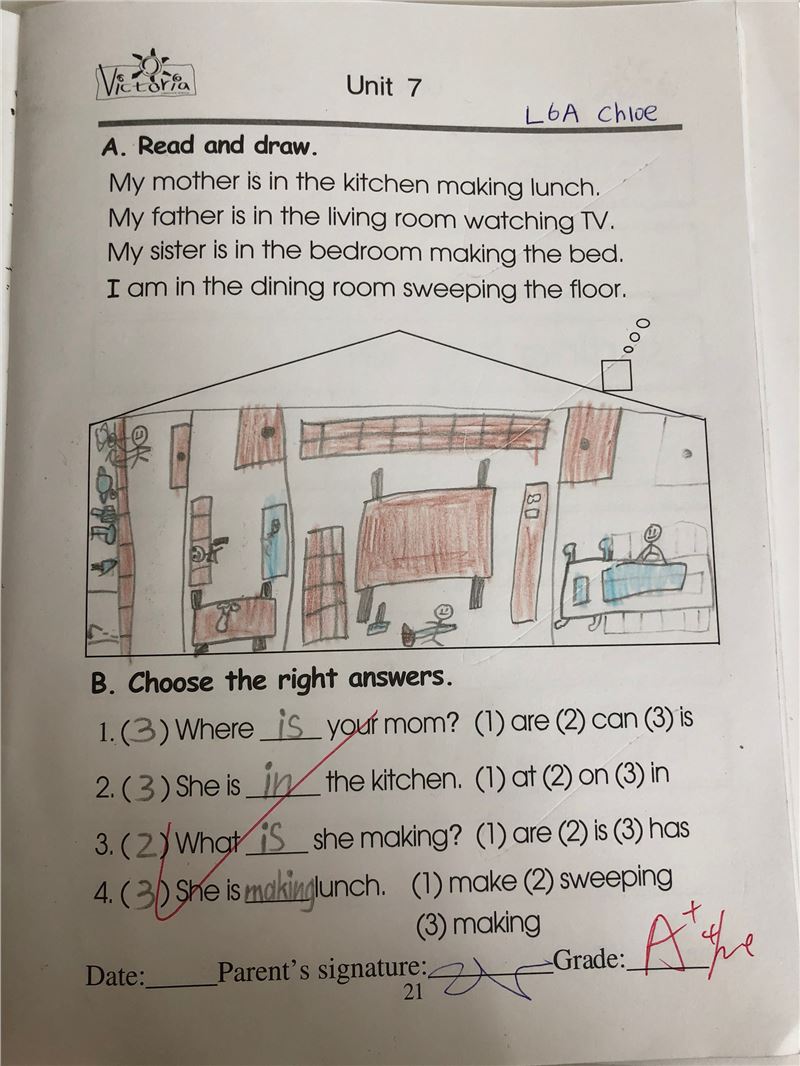 Victoria
Unit 7
L6A Chloe
A. Read and draw.
My mother is in the kitchen making lunch.
My father is in the living room watching TV.
My sister is in the bedroom making the bed.
I am in the dining room sweeping the floor.
B. Choose the right answers.
1. (3) Where is your mom? (1) are (2) can (3) is
2. (3) She is in the kitchen. (1) at (2) on (3) in
3. (2) What is she making? (1) are (2) is (3) has
4. (3) She is making lunch. (1) make (2) sweeping
(3) making
Date:_____Parent's signature:_________Grade:______ A+
21